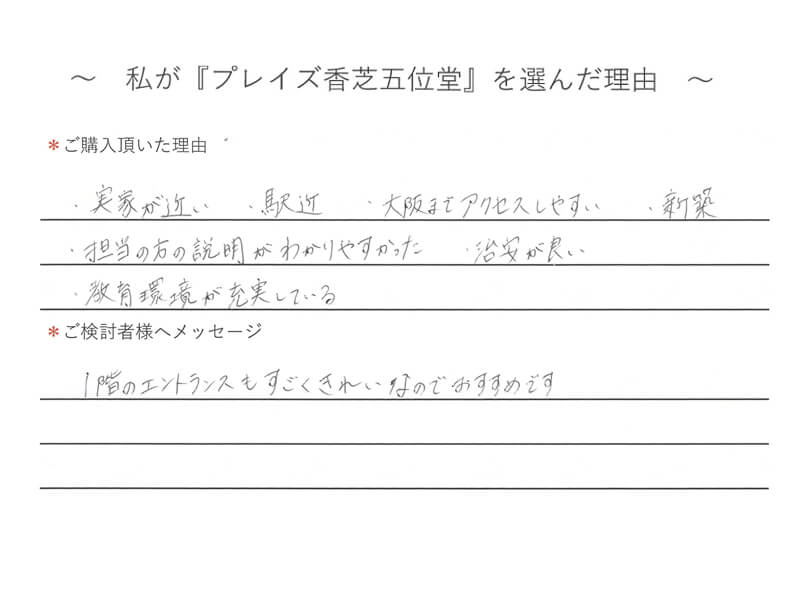 ～ 私が『プレイズ香芝五位堂』を選んだ理由 ～
＊ご購入頂いた理由
・実家が近い ・駅近 ・大阪までアクセスしやすい ・新築
・担当の方の説明がわかりやすかった ・治安が良い
・教育環境が充実している
＊ご検討者様へメッセージ
1階のエントランスもすごくきれいなのでおすすめです